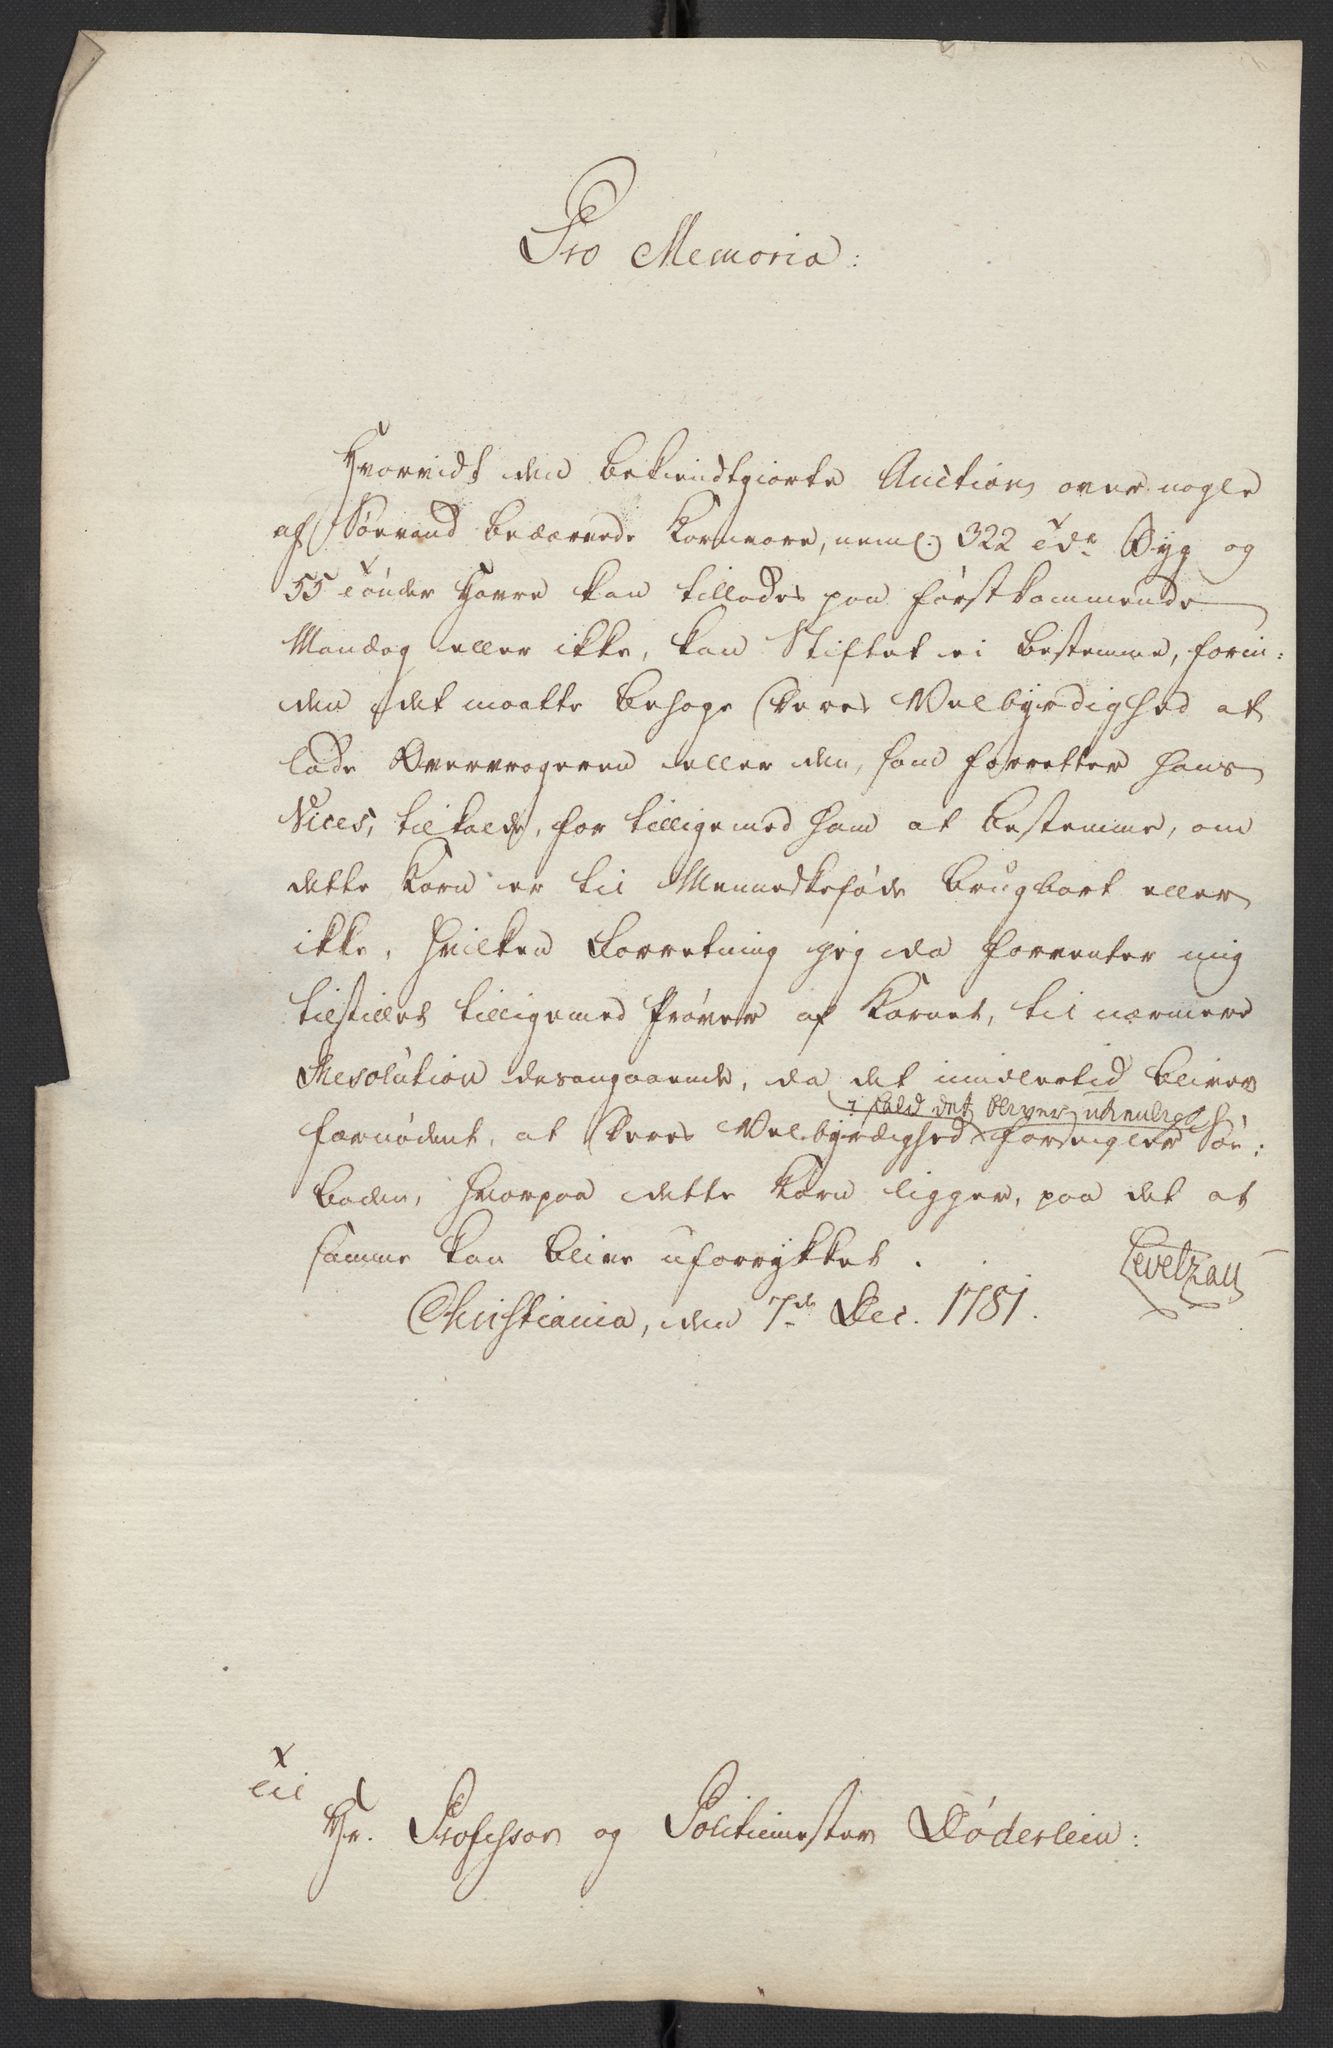 Pro Memoria:
Hvorvidt den bekiendtgiorte Auction over nogle
af Søevand beærede Kornvare, neml. 322 Tdr Byg og
55 Tønder Havre kan tillades paa førstkommende
Mandag eller ikke, kan Stiftet ei bestemme, forin-
den det maatte behage Deres Velbyrdighed at
lade Overvrageren eller den, som forretter hans
Vices, tilkalde, for tilligemed ham at bestemme, om
dette Korn er til Menneskeføde brugbart eller
ikke, hvilken Forretning jeg da forventer mig
tilstillet tilligemed Prøver af Kornet, til nærmere
Resolution desangaaende, da det imidlertid bliver
i fald det bliver
fornødent, at Deres Velbyrdighed forseigler Søe-
boden, hvorpaa dette Korn ligger, paa det at
samme kan blive uforrykket.
Levetzau
Christiania, den 7de Dec. 1781.
Til
Hr. Professor og Politiemester Døderlein: